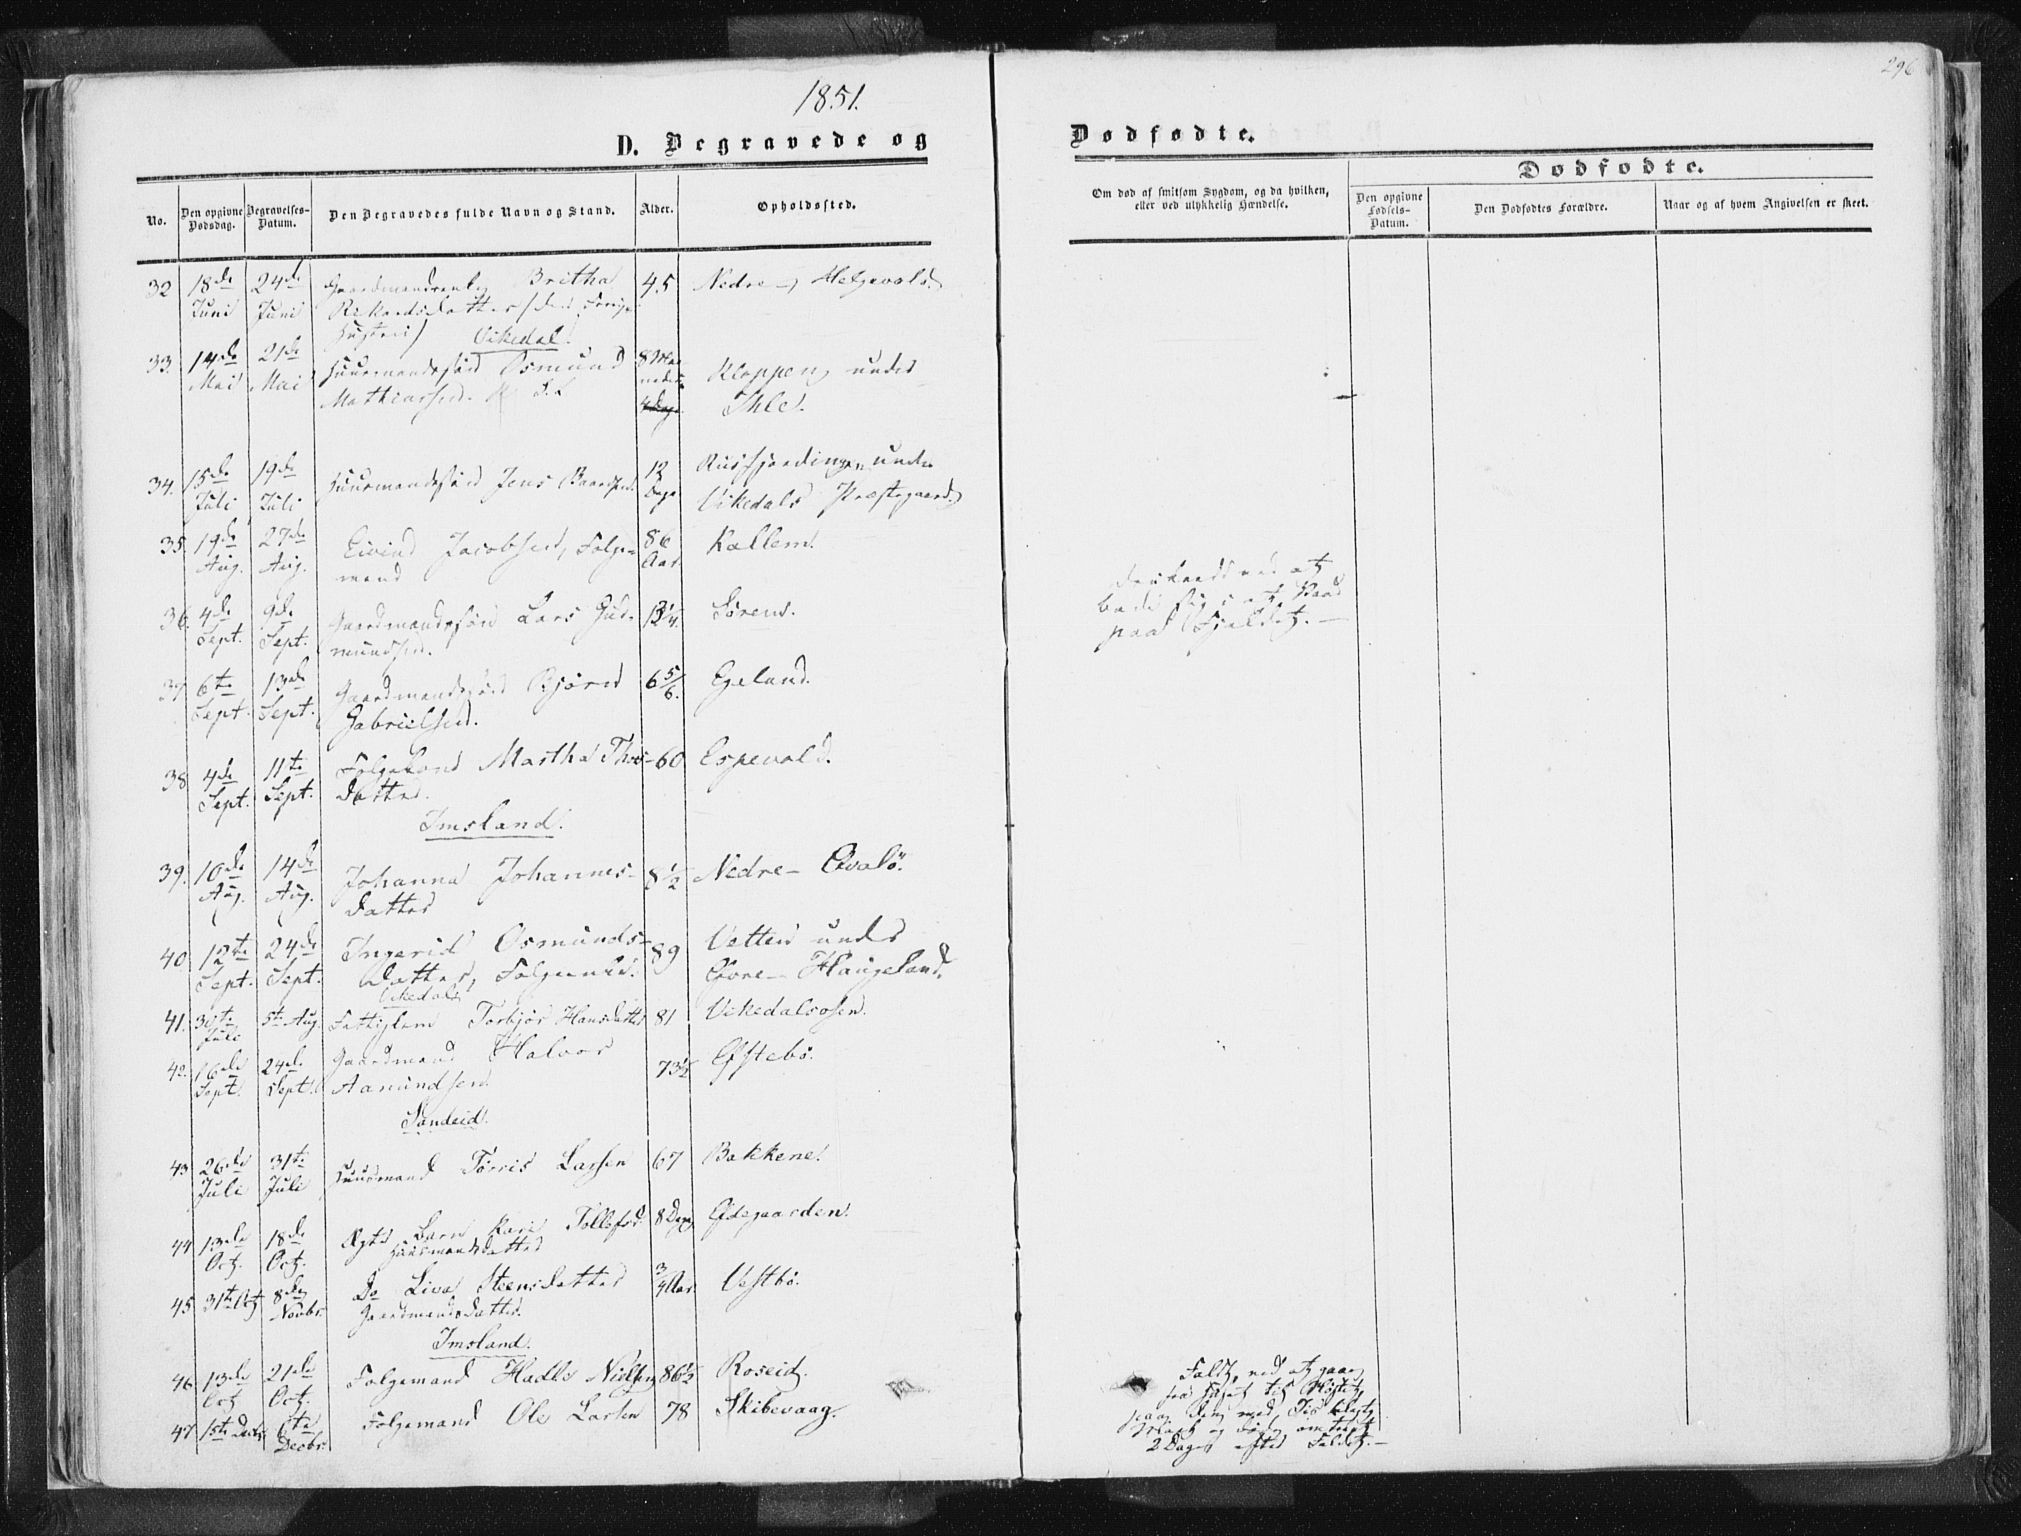 296
1851.
D. Begravede og Dødfødte.
Dødfødte.
No.
Den opgivne Dødsdag.
Begravelses-Datum.
Den Begravedes fulde Navn og Stand.
Alder.
Opholdssted.
Om død af smitsom Sygdom, og da hvilken,
eller ved ulykkelig Hændelse.
Den opgivne Fødsels-Datum.
Den Dødfødtes Forældre.
Naar og af hvem Angivelsen er skeet.
32 18de Juni 24de Juni Britha 45 Nedre-Helgevold
Rikardsdatter
Vikedal.
33. 14de Mai 21de Mai Huusmandssøn Osmund 8 Maaneder Kloppen under
Mathiassen. 4 Dage Ihle.
34. 15de Juli 19de Juli Huusmandssøn Jens Baardsen. 12 Dage under
Vikedals Præstegaard
35. 19de Aug. 27de Aug. Eivind Jacobsen, Folge- 86 Aar Kallem.
mand
36. 4de Sept. 9de Sept. Gaardmandssøn Lars Gud- Søren.
mundsen.
bade sig i et Vand
paa Fjeldet.
37 6te Sept. 13de Sept. Gaardmandssøn Bjørn 6 5/6. Egeland.
Gabrielsen.
38 4de Sept. 11te Sept. Martha Thors- 60 Espevold.
datter.
Imsland.
39. 10de Aug. 14de Aug. Johanna Johannes- 8 1/2 Nedre-Qvalø.
datter
40 12te Sept. 24de Sept. Ingerid Osmunds- 89 Vetten under
datter, Øvre-Haugeland.
Vikedal
41. 30te Juli 5te Aug. Fattiglem Torbjør Hansdatter 81 Vikedalsosen.
42. 16de Sept. 24de Sept. Gaardmand Halvor 73 1/2 Øfstebø.
Aamundsen
Sandeid.
43 26de Juli 31te Juli Huusmand Tørris Larsen 67 Bakkene.
44 13de Oct. 18de Oct. Ægte Barn Kari Tollefsd. 8 Dage Ødegaarden.
Huusmandsdatter
45 31te Oct 8de Novbr. Do Liva Steensdatter 3/4 Aar. Vestbø.
Gaardmandsdatter.
Imsland.
46 13de Oct 21de Oct. Folgemand Hadle Nielsen 86 1/2 Roseid.
47 1ste Decbr 6te Decbr. Folgemand Ole Larsen 78 Skibevaag.
Faldt, ved at gaae
fra Huset til
2 Dage efter Faldet.